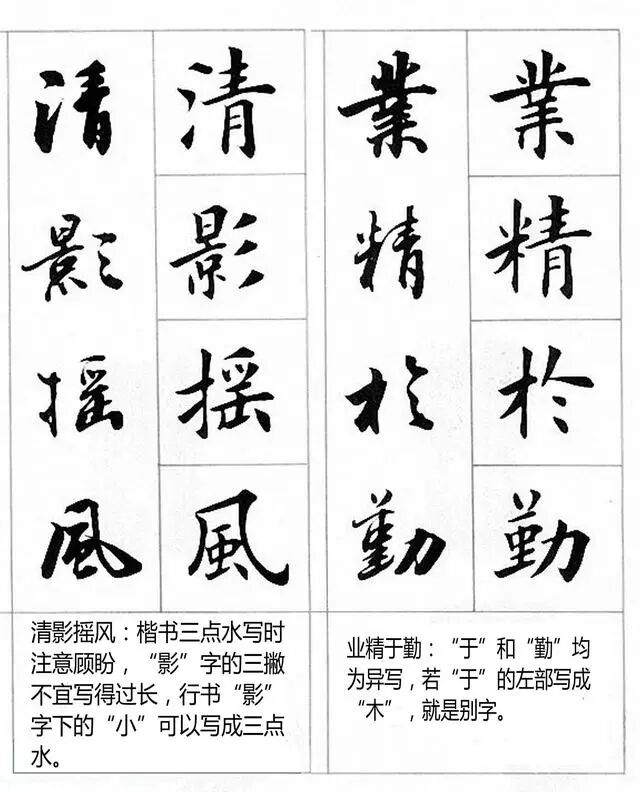 業精於勤
業精於勤
清影摇風
清影摇風
业精于勤：“于”和“勤”均
为异写，若“于”的左部写成
“木”，就是别字。
清影摇风：楷书三点水写时
注意顾盼，“影”字的三撇
不宜写得过长，行书“影”
字下的“小”可以写成三点
水。